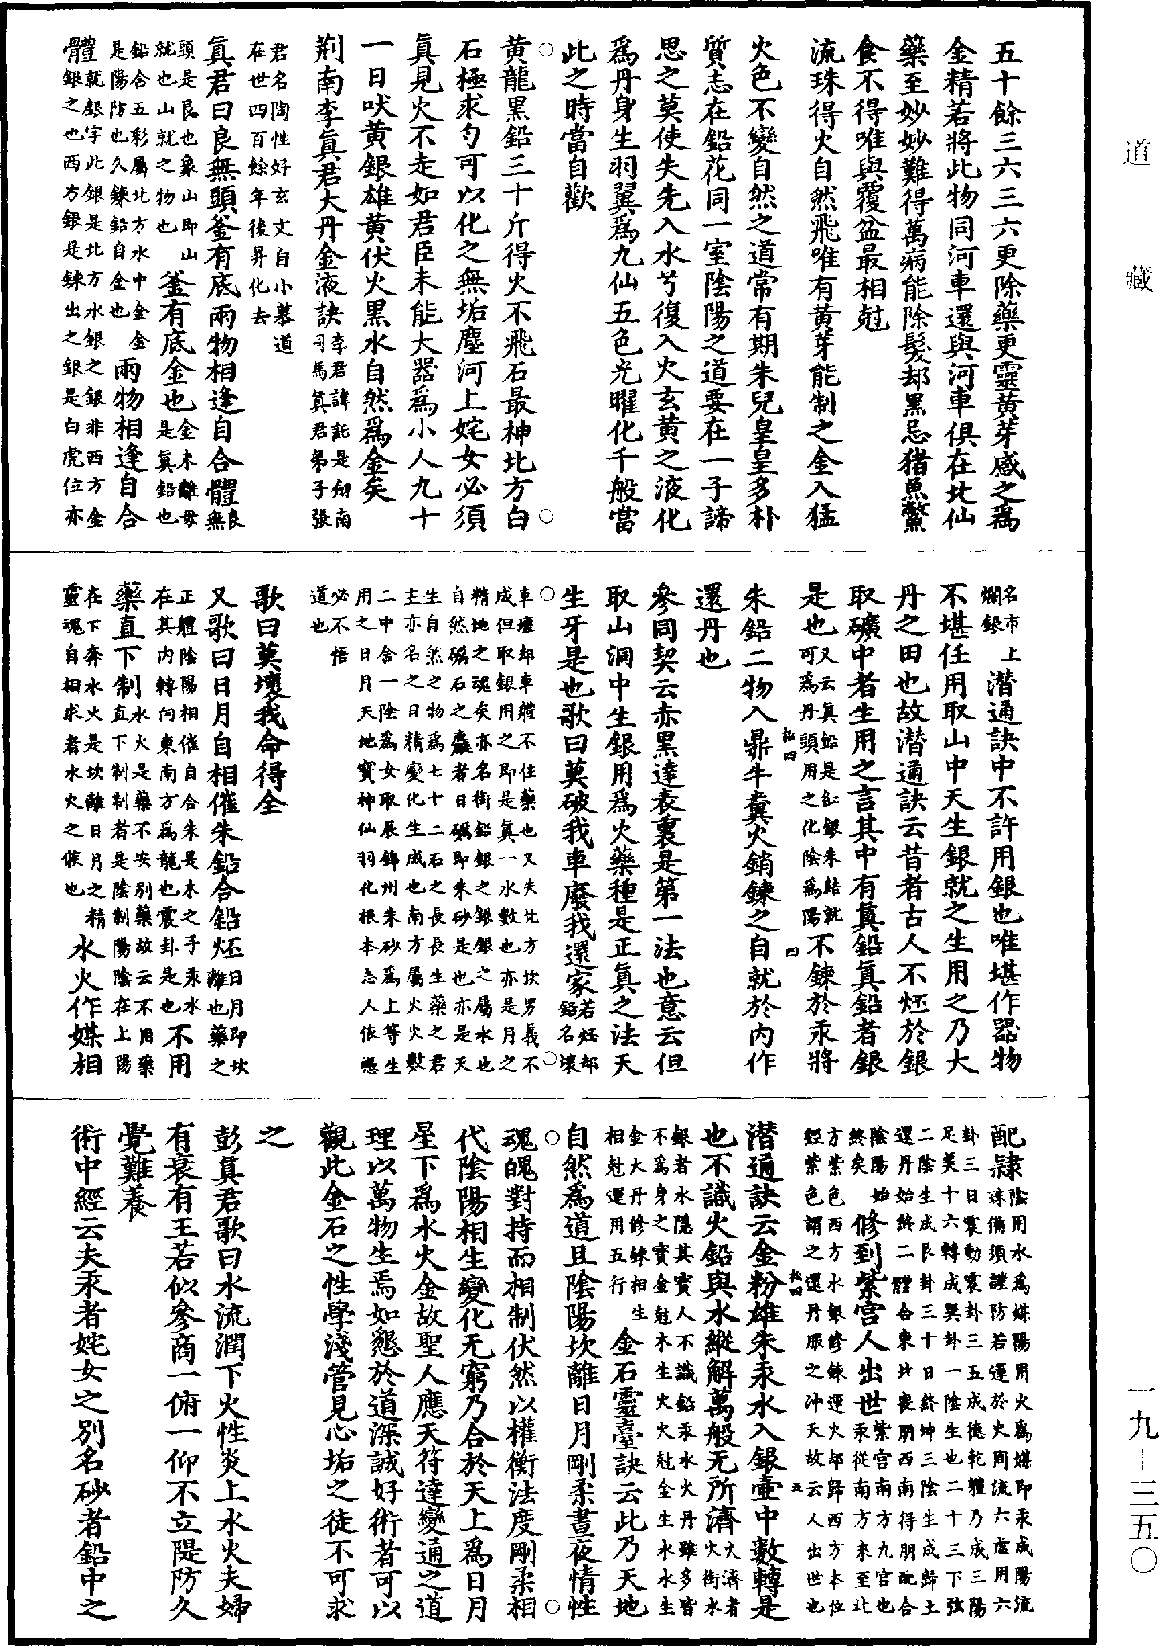 道藏
一九—三五〇
五十餘三六三六更除藥更靈黃芽感之爲
金精若將此物同河車還與河車俱在北仙
藥至妙妙難得萬病能除髮却黑忌猪魚鱉
食不得唯與覆盆最相尅
流珠得火自然飛唯有黃芽能制之金入猛
火色不變自然之道常有期朱兒皇皇多朴
質志在鉛花同一室陰陽之道要在一子諦
思之莫使失先入水兮復入火玄黃之液化
爲丹身生羽翼爲九仙五色光曜化千般當
此之時當自歡
黃龍黑鉛三十斤得火不飛石最神北方白
石極求勺可以化之無垢塵河上姹女必須
真見火不走如君臣未能大器爲小人九十
一日吠黃銀雄黃伏火黑水自然爲金矣
荆南李真君大丹金液訣李君諱託是劍南
司馬真君弟子張
君名陶性好玄丈自小慕道
在世四百餘年後昇化去
真君曰良無頭釜有底兩物相逢自合體良無
頭是艮也象山即山
就也山就之物也釜有底金也金未離母
是真鉛也
鉛含五彩屬北方水中金金
是陽防也久鍊鉛自金也兩物相逢自合
體就銀字此銀是北方水銀之銀非西方金
銀之也西方銀是鍊出之銀是白虎位亦
名市上
爛銀潛通訣中不許用銀也唯堪作器物
不堪任用取山中天生銀就之生用之乃大
丹之田也故潛通訣云昔者古人不炼於銀
取礦中者生用之言其中有真鉛真鉛者銀
是也又云真鉛是鉛銀朱結就
可爲丹頭用之化陰爲陽不鍊於汞將
朱鉛二物入鼎牛糞火銷鍊之自就於内作
還丹也
參同契云赤黑達表裏是第一法也意云但
取山洞中生銀用爲火藥種是正真之法天
生牙是也歌曰莫破我車廢我還家若炼却
鉛名壞
車壞却車難不住藥也又失北方坎男義不
成但取銀用之即是真一水數也亦是月之
精地之魂矣亦名銜鉛銀之銀銀之屬水也
自然礪石之靈者日礪即朱砂是也亦是天
生自然之物爲七十二石之長長生藥之君
主亦名之日精變化生成也南方屬火火數
二中含一陰爲女取辰錦州朱砂爲上等生
用之日月天地寶神仙羽化根本志人依憑
必不悟
道也
歌曰莫壞我命得全
又歌曰日月自相催朱鉛合鉛炼日月即坎
離也藥之
正體陰陽相催自合朱是木之子汞水
在其内轉向東南方爲龍也震卦是也不用
藥直下制水火是藥不安别藥故云不用藥
直下制制者是陰制陽陰在上陽
在下奔水火是坎離日月之精
靈魂自相求者水火之候也水火作媒相
配隸陰用水爲媒陽用火爲媒即汞成陽流
珠備須謹防若運於火周流六虛用六
卦三日震動震卦三五成德乾體乃成三陽
足矣十六轉成巽卦一陰生也二十三下弦
二陰生成艮卦三十日終坤三陰生成歸土
還丹始終二體合東北喪朋西南得朋配合
陰陽始
終矣修到紫宫人出世紫宫南方九宫也
汞從南方來至北
方紫色西方水銀修鍊運火却歸西方本位
經紫色謂之還丹服之冲天故云人出世也
潛通訣云金粉雄朱汞水入銀壺中數轉是
也不識火鉛與水縱解萬般无所濟火濟者
火銜水
銀者水隱其實人不識鉛汞水火丹雖多皆
不爲身之寳金尅木生火火尅金生水水生
金大丹修鍊相生
相尅運用五行金石靈臺訣云此乃天地
自然爲道且陰陽坎離日月剛柔晝夜情性
魂魄對持而相制伏然以權衡法度剛柔相
代陰陽相生變化无窮乃合於天上爲日月
星下爲水火金故聖人應天符達變通之道
理以萬物生焉如懇於道深誠好術者可以
觀此金石之性學淺管見心垢之徒不可求
之
彭真君歌曰水流潤下火性炎上水火夫婦
有衰有王若似參商一俯一仰不立隄防久
覺難養
術中經云夫汞者姹女之别名砂者鉛中之